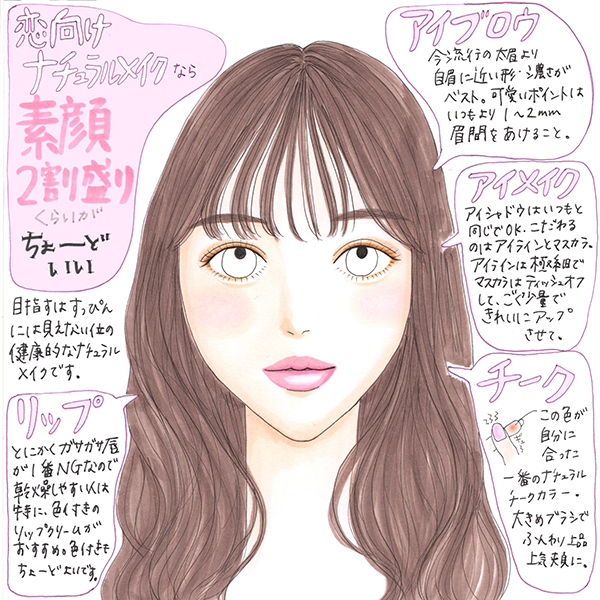 恋向け
ナチュラルメイクなら
素顔
2割盛り
くらいが
ちょーど
いい
目指すはすっぴん
には見えない位の
健康的なナチュラル
メイクです。
リップ
とにかくガサガサ唇
が1番NGなので
乾燥しやすい人は
特に、色付きの
リップクリームが
おすすめ。色付きも
ちょーどよいです。
アイブロウ
今流行の太眉より
自眉に近い形・濃さが
ベスト。可愛いポイントは
いつもより1〜2mm
眉間をあけること。
アイメイク
アイシャドウはいつもと
同じでOK.こだわる
のはアイラインとマスカラ。
アイラインは極細で
マスカラはティッシュオフ
して、ごく少量で
きれいにアップ
させて。
チーク
この色が
自分に
合った
一番のナチュラル
チークカラー。
大きめブラシで
ふんわり上品
上気頬に。